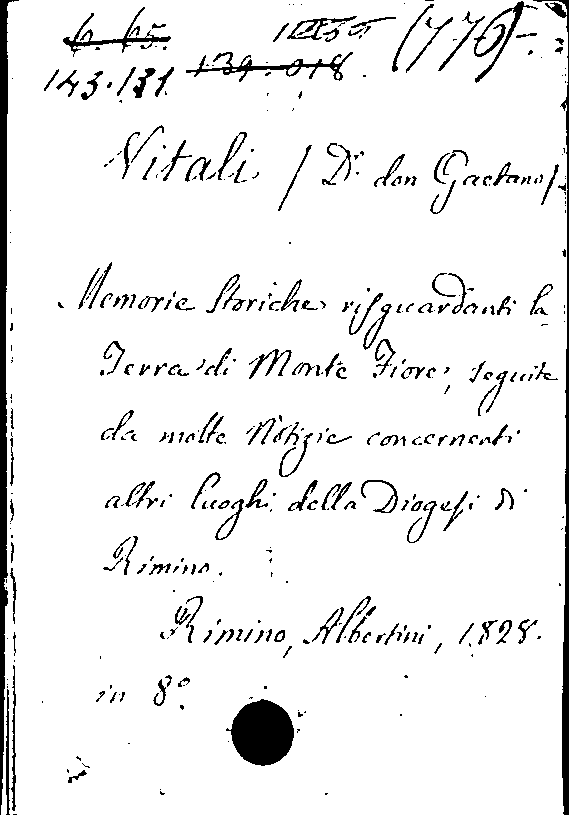 6. 65. (776)
143.131 139.018.
Vitali / Dr. don Gaetano/.
Memorie Storiche risguardanti la
Terra di Monte Fiore, seguite
da molte Notizie concernenti
altri luoghi della Diogesi di
Rimino.
Rimino, Albertini, 1828.
in 8º.